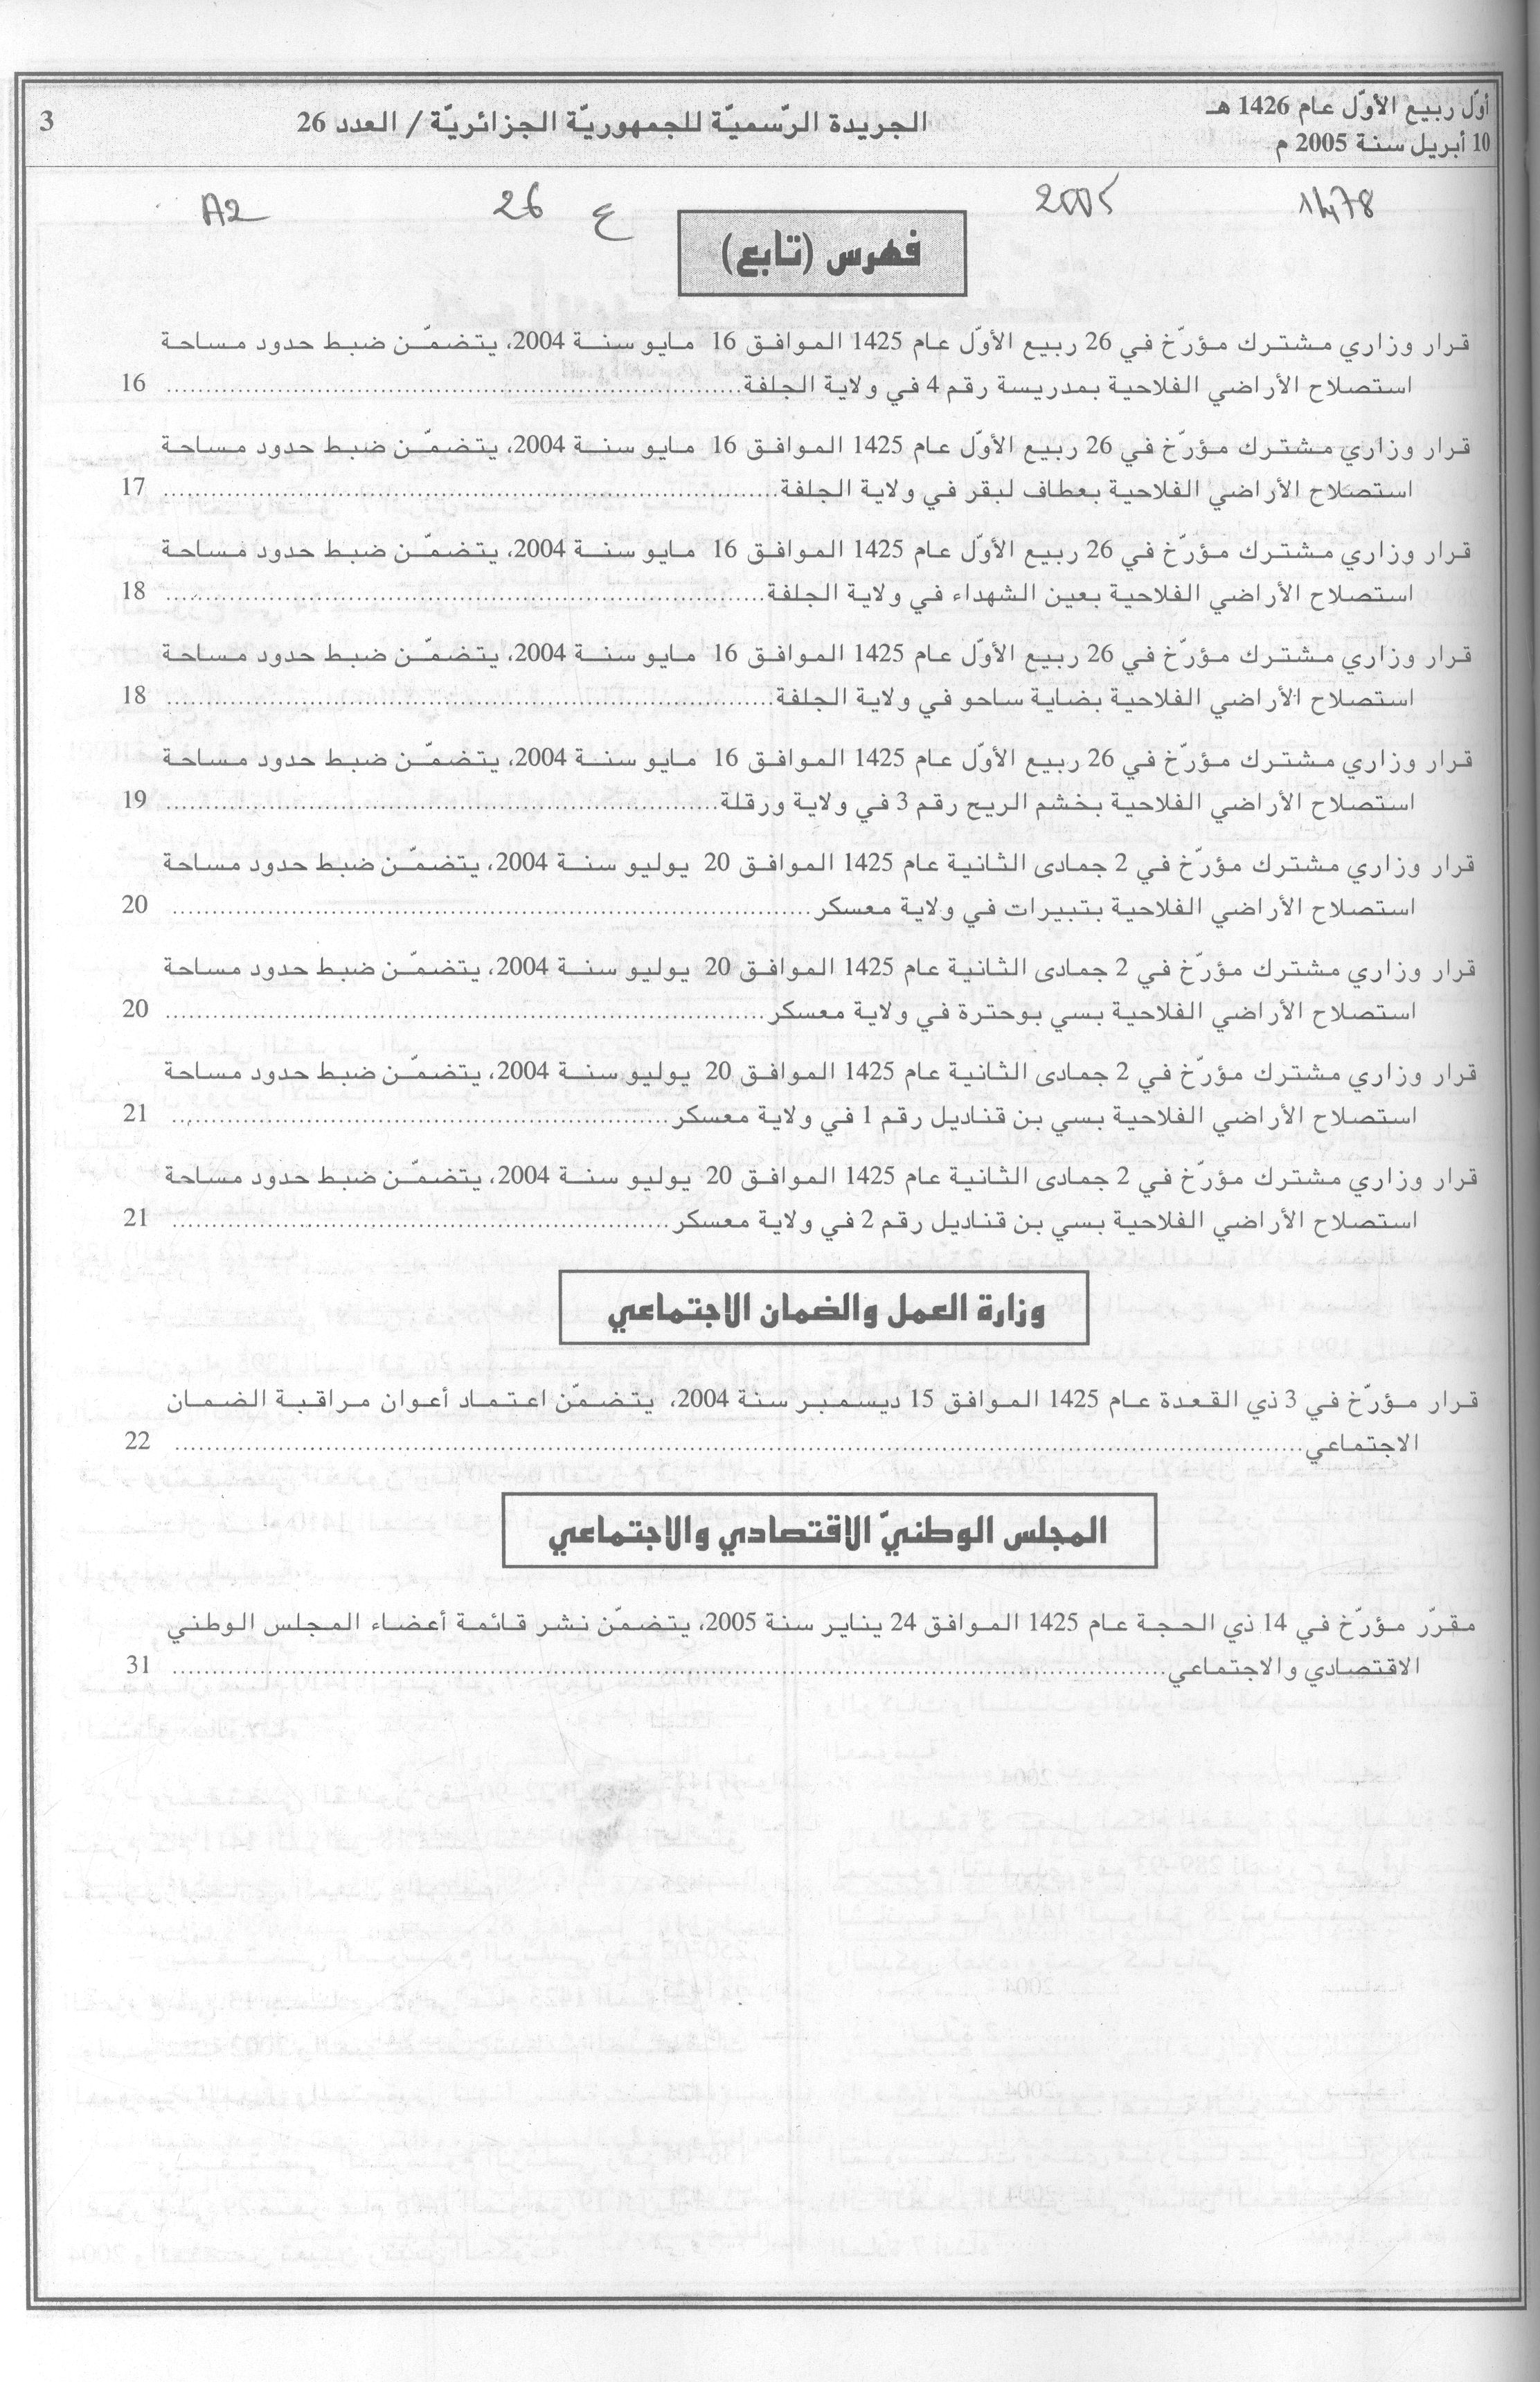 أوّل ربيع الأوّل عام 1426 هـ
10 أبريل سنة 2005 م
الجريدة الرّسميّة للجمهوريّة الجزائريّة / العدد 26
3
1478
2005
ع 26
A2
فهرس (تابع)
قرار وزاري مشترك مؤرّخ في 26 ربيع الأوّل عام 1425 الموافق 16 مايو سنة 2004، يتضمّن ضبط حدود مساحة
استصلاح الأراضي الفلاحية بمدريسة رقم 4 في ولاية الجلفة ........ 16
قرار وزاري مشترك مؤرّخ في 26 ربيع الأوّل عام 1425 الموافق 16 مايو سنة 2004، يتضمّن ضبط حدود مساحة
استصلاح الأراضي الفلاحية بعطاف لبقر في ولاية الجلفة ........ 17
قرار وزاري مشترك مؤرّخ في 26 ربيع الأوّل عام 1425 الموافق 16 مايو سنة 2004، يتضمّن ضبط حدود مساحة
استصلاح الأراضي الفلاحية بعين الشهداء في ولاية الجلفة ........ 18
قرار وزاري مشترك مؤرّخ في 26 ربيع الأوّل عام 1425 الموافق 16 مايو سنة 2004، يتضمّن ضبط حدود مساحة
استصلاح الأراضي الفلاحية بضاية ساحو في ولاية الجلفة ........ 18
قرار وزاري مشترك مؤرّخ في 26 ربيع الأوّل عام 1425 الموافق 16 مايو سنة 2004، يتضمّن ضبط حدود مساحة
استصلاح الأراضي الفلاحية بخشم الريح رقم 3 في ولاية ورقلة ........ 19
قرار وزاري مشترك مؤرّخ في 2 جمادى الثانية عام 1425 الموافق 20 يوليو سنة 2004، يتضمّن ضبط حدود مساحة
استصلاح الأراضي الفلاحية بتبيرات في ولاية معسكر ........ 20
قرار وزاري مشترك مؤرّخ في 2 جمادى الثانية عام 1425 الموافق 20 يوليو سنة 2004، يتضمّن ضبط حدود مساحة
استصلاح الأراضي الفلاحية بسي بوحترة في ولاية معسكر ........ 20
قرار وزاري مشترك مؤرّخ في 2 جمادى الثانية عام 1425 الموافق 20 يوليو سنة 2004، يتضمّن ضبط حدود مساحة
استصلاح الأراضي الفلاحية بسي بن قناديل رقم 1 في ولاية معسكر ........ 21
قرار وزاري مشترك مؤرّخ في 2 جمادى الثانية عام 1425 الموافق 20 يوليو سنة 2004، يتضمّن ضبط حدود مساحة
استصلاح الأراضي الفلاحية بسي بن قناديل رقم 2 في ولاية معسكر ........ 21
وزارة العمل والضمان الاجتماعي
قرار مؤرّخ في 3 ذي القعدة عام 1425 الموافق 15 ديسمبر سنة 2004، يتضمّن اعتماد أعوان مراقبة الضمان
الاجتماعي ........ 22
المجلس الوطنيّ الاقتصادي والاجتماعي
مقرّر مؤرّخ في 14 ذي الحجة عام 1425 الموافق 24 يناير سنة 2005، يتضمّن نشر قائمة أعضاء المجلس الوطني
الاقتصادي والاجتماعي ........ 31